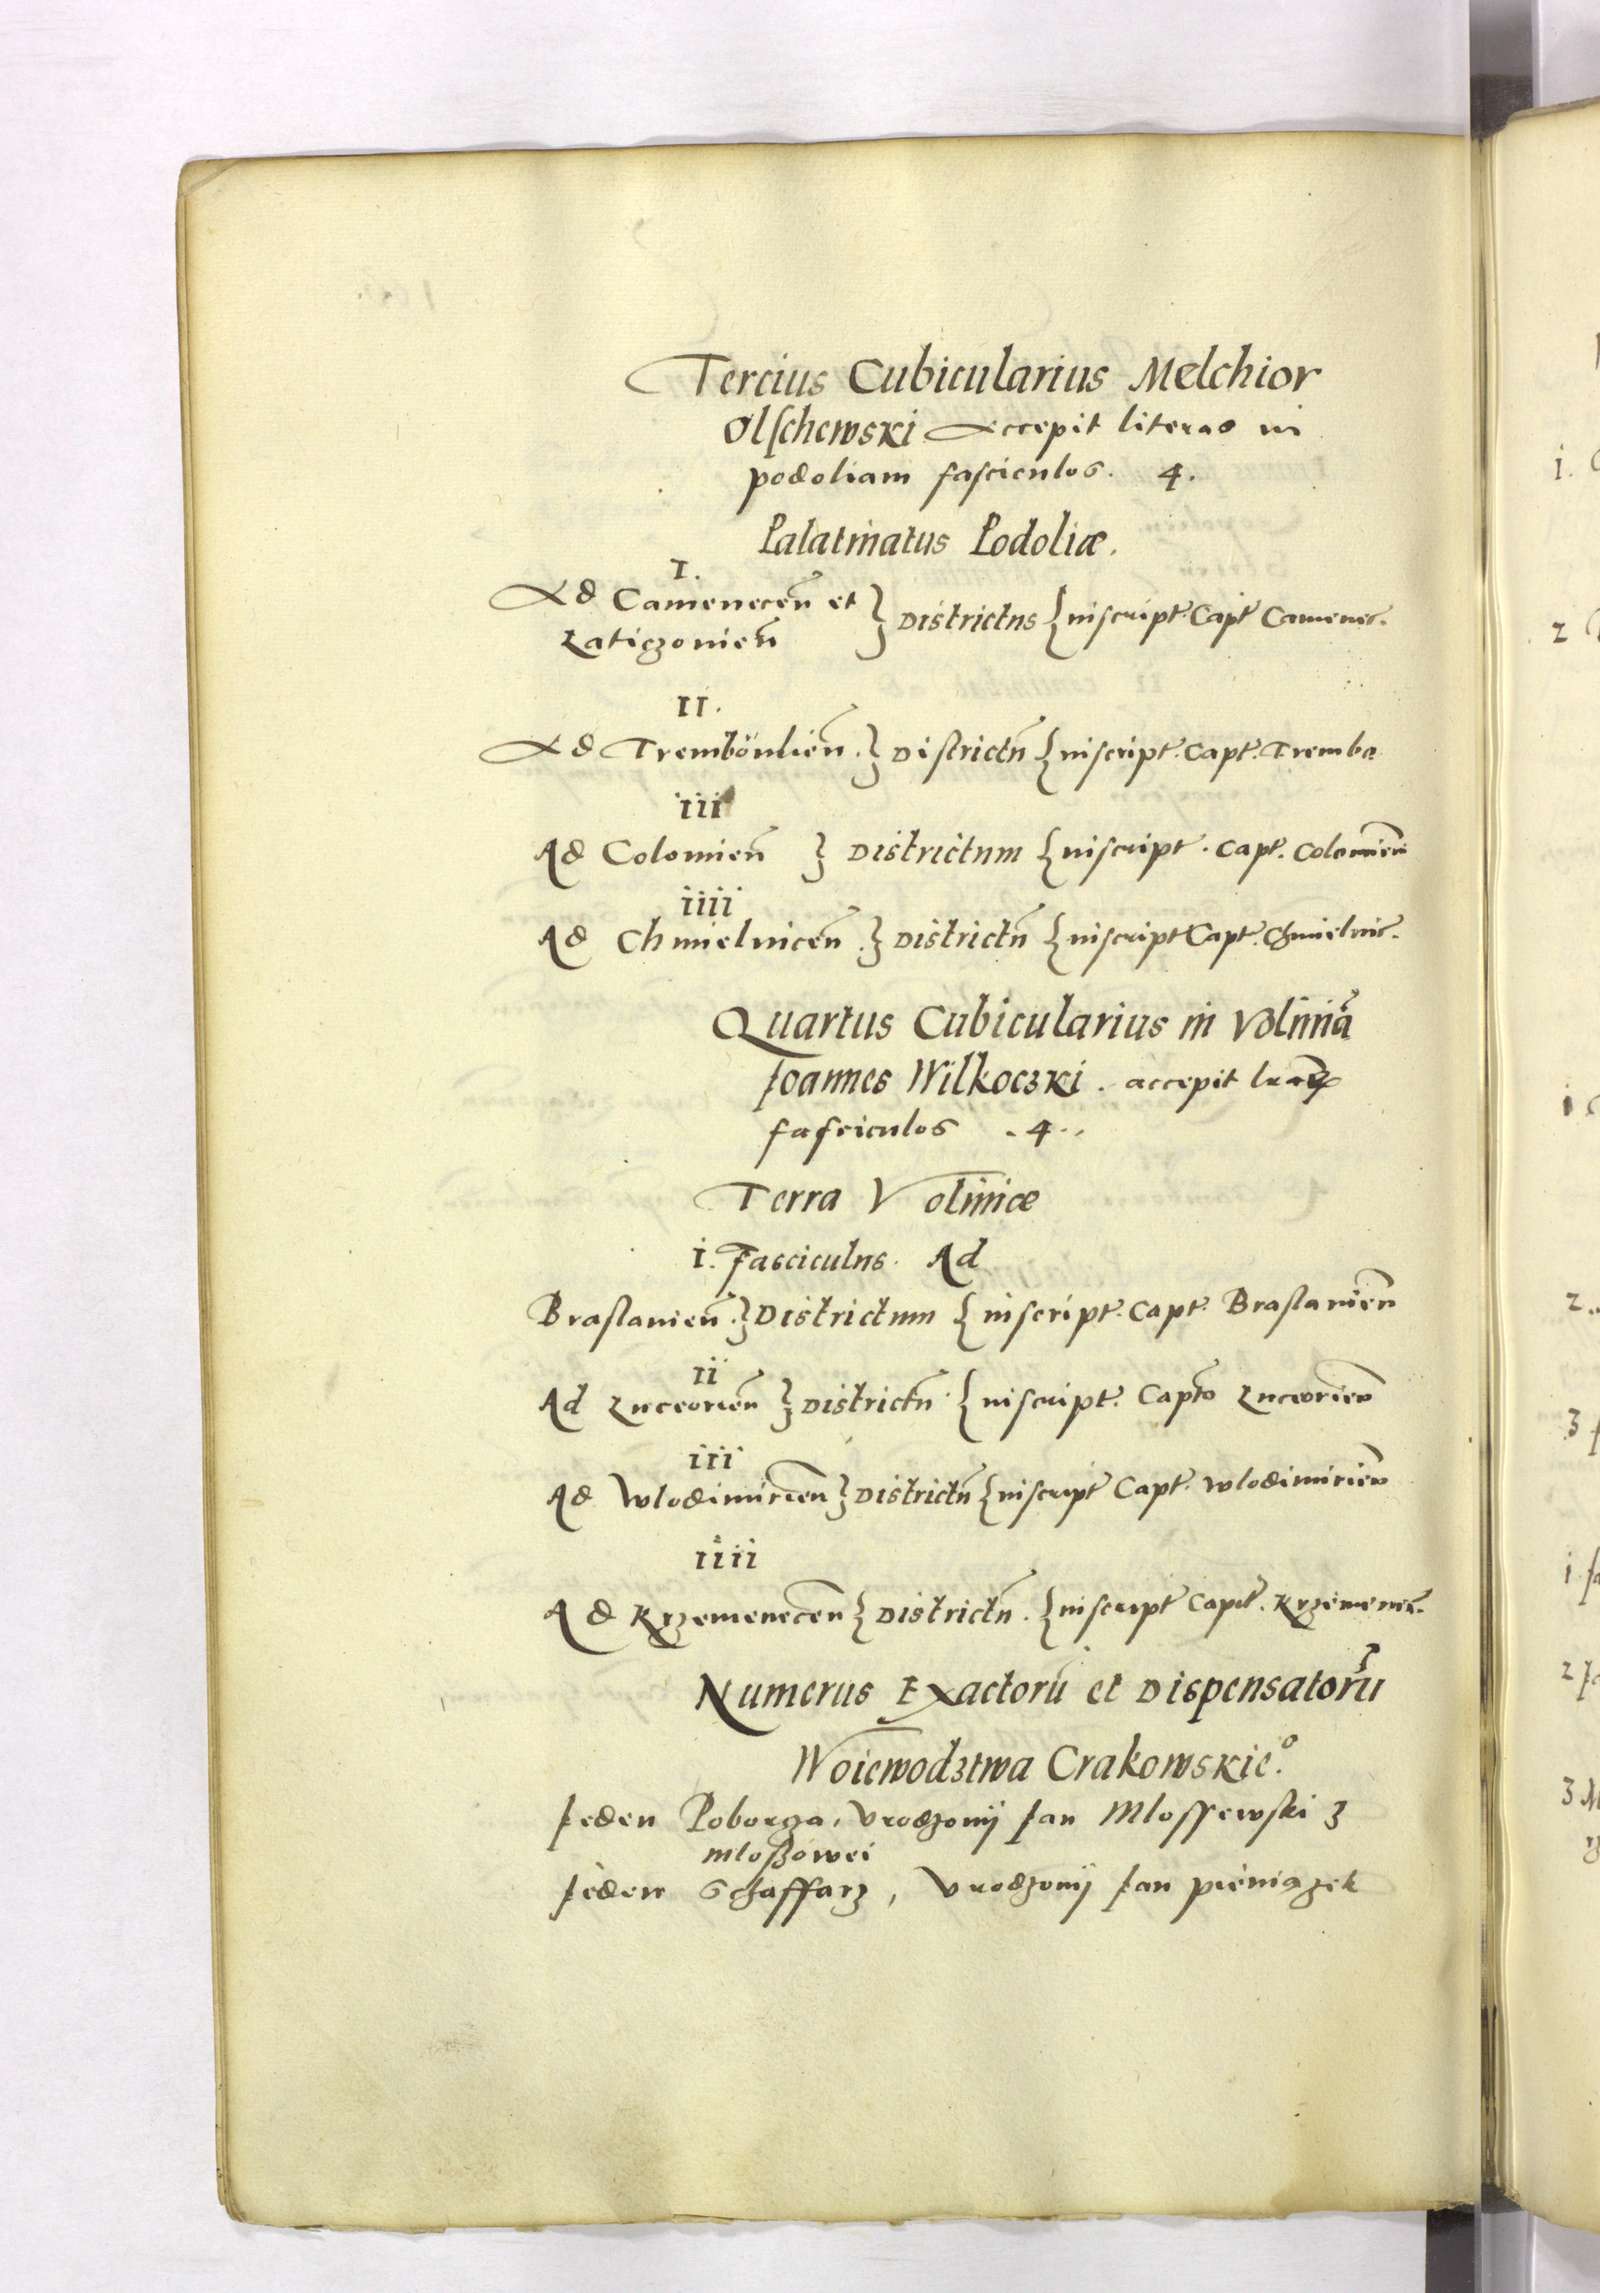 Tercius Cubicularius Melchior
Olschewski Accepit literas in
podoliam fasciculos. 4.
Palatinatus Podoliæ.
I.
Ad Camenecen̄ et } Districtus { inscript. Capt Camenec.
Laticzonien̄
II.
Ad Trembowlien̄. } Districtū { inscript. Capt. Tremba
iii
Ad Colomien̄ } Districtum { inscript. Capt. Colomien̄
iiii
Ad Chmielnicen̄. } Districtū { inscript Capt. Chmielnic.
Quartus Cubicularius in Voliniā
Joannes Wilkoczki. accepit
fasciculos . 4..
Terra Voliniæ
i. Fasciculus. Ad
Braslavien̄. } Districtum { inscript. Capt. Braslavien̄
ii
Ad Luceorien̄ } Districtū { inscript. Capto Luceorien̄
iii
Ad Wlodimirien̄ } Districtū { inscript Capt. Wlodimirien̄
iiii
Ad Krzemenecen̄ { Districtū. { inscript Capit. Krzemenec.
Numerus Exactorū et Dispensatorū
Woiewodztwa Crakowskie.º
Jeden Poborcza, Vrodzonÿ Jan Mlossewski z
mloszowei
Jeden Schaffarz, Vrodzonÿ Jan pieniązek